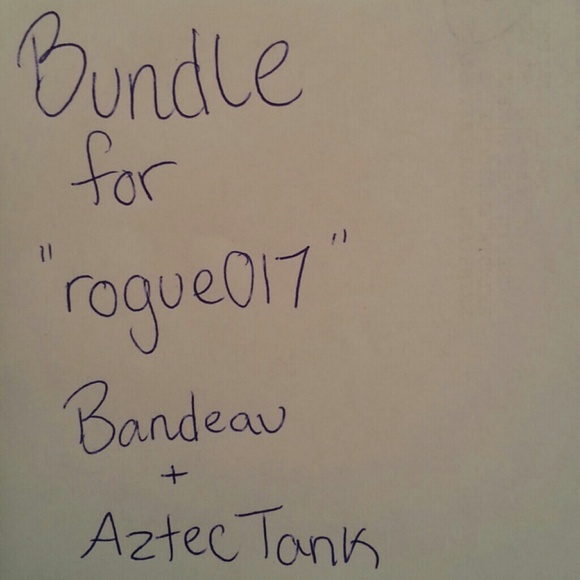 Bundle
for
"rogue017"
Bandeau
+
Aztec Tank